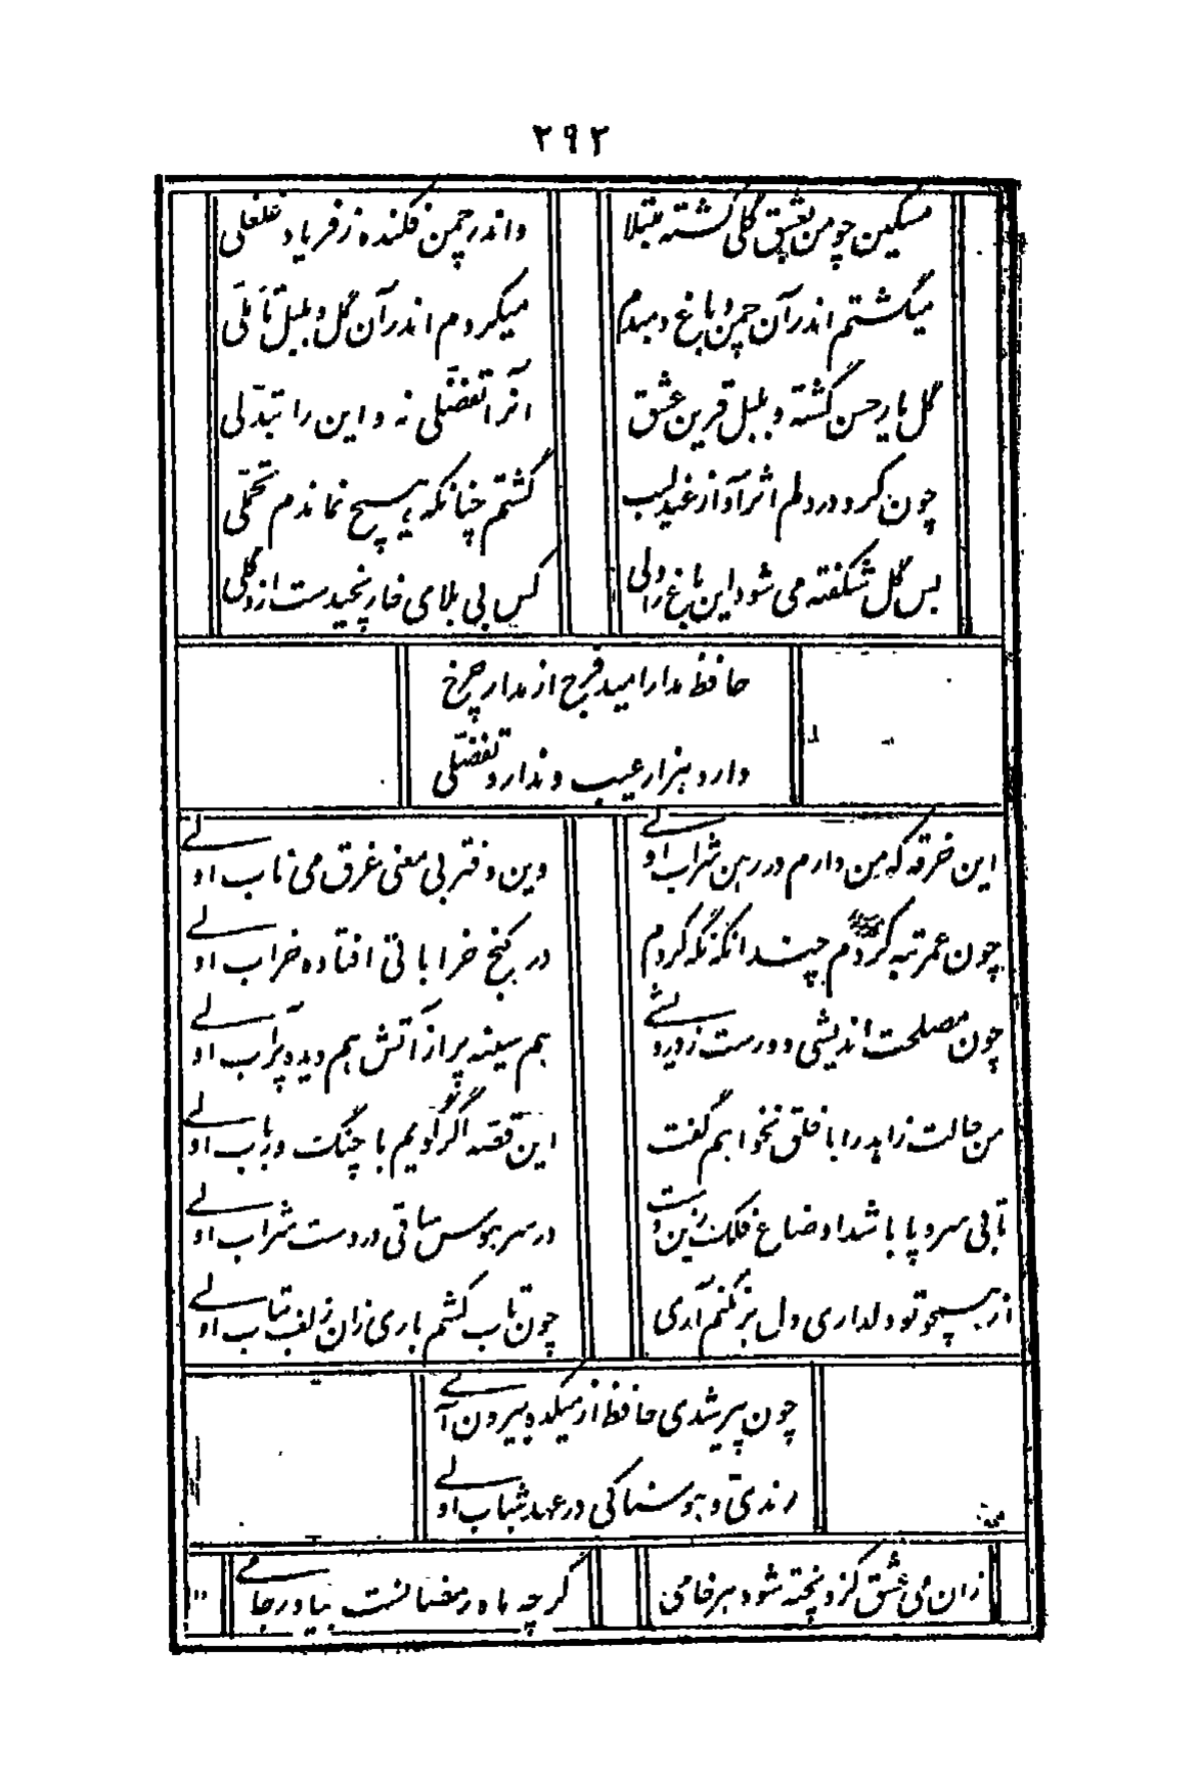 ۲۹۲
مسکین چو من بعشق گلی گشته مبتلا
واندر چمن فکنده ز فریاد غلغلی
میگشتم اندر آن چمن و باغ و مبدم
میکردم اندر آن گل و بلبل تأملی
گل یار حسن گشته و بلبل قرین عشق
آنرا تفضلی نه و این را تبدلی
چون کرد در دلم اثر آواز عندلیب
گشتم چنانکه هیچ نماندم تحملی
بس گل شکفته می شود این باغ را ولی
کس بی بلای خار نچیدست ازو گلی
حافظ مدار امید فرح از مدار چرخ
دارد هزار عیب و ندارد تفضلی
این خرقه که من دارم در رهن شراب اولی
وین دفتر بی معنی غرق می ناب اولی
چون عمر تبه کردم چندانکه نگه کردم
در کنج خراباتی افتاده خراب اولی
چون مصلحت اندیشی دورست ز درویشی
هم سینه پر از آتش هم دیده پرآب اولی
من حالت زاهد را با خلق نخواهم گفت
این قصه اگر گویم با چنگ و رباب اولی
تا بی سر و پا باشد اوضاع فلک زین دست
در سر هوس ساقی در دست شراب اولی
از همچو تو دلداری دل برنکنم آری
چون تاب کشم باری زان زلف بتاب اولی
چون پیر شدی حافظ از میکده بیرون آی
رندی و هوسناکی در عهد شباب اولی
زان می عشق کزو پخته شود هر خامی
گرچه ماه رمضانست بیاور جامی